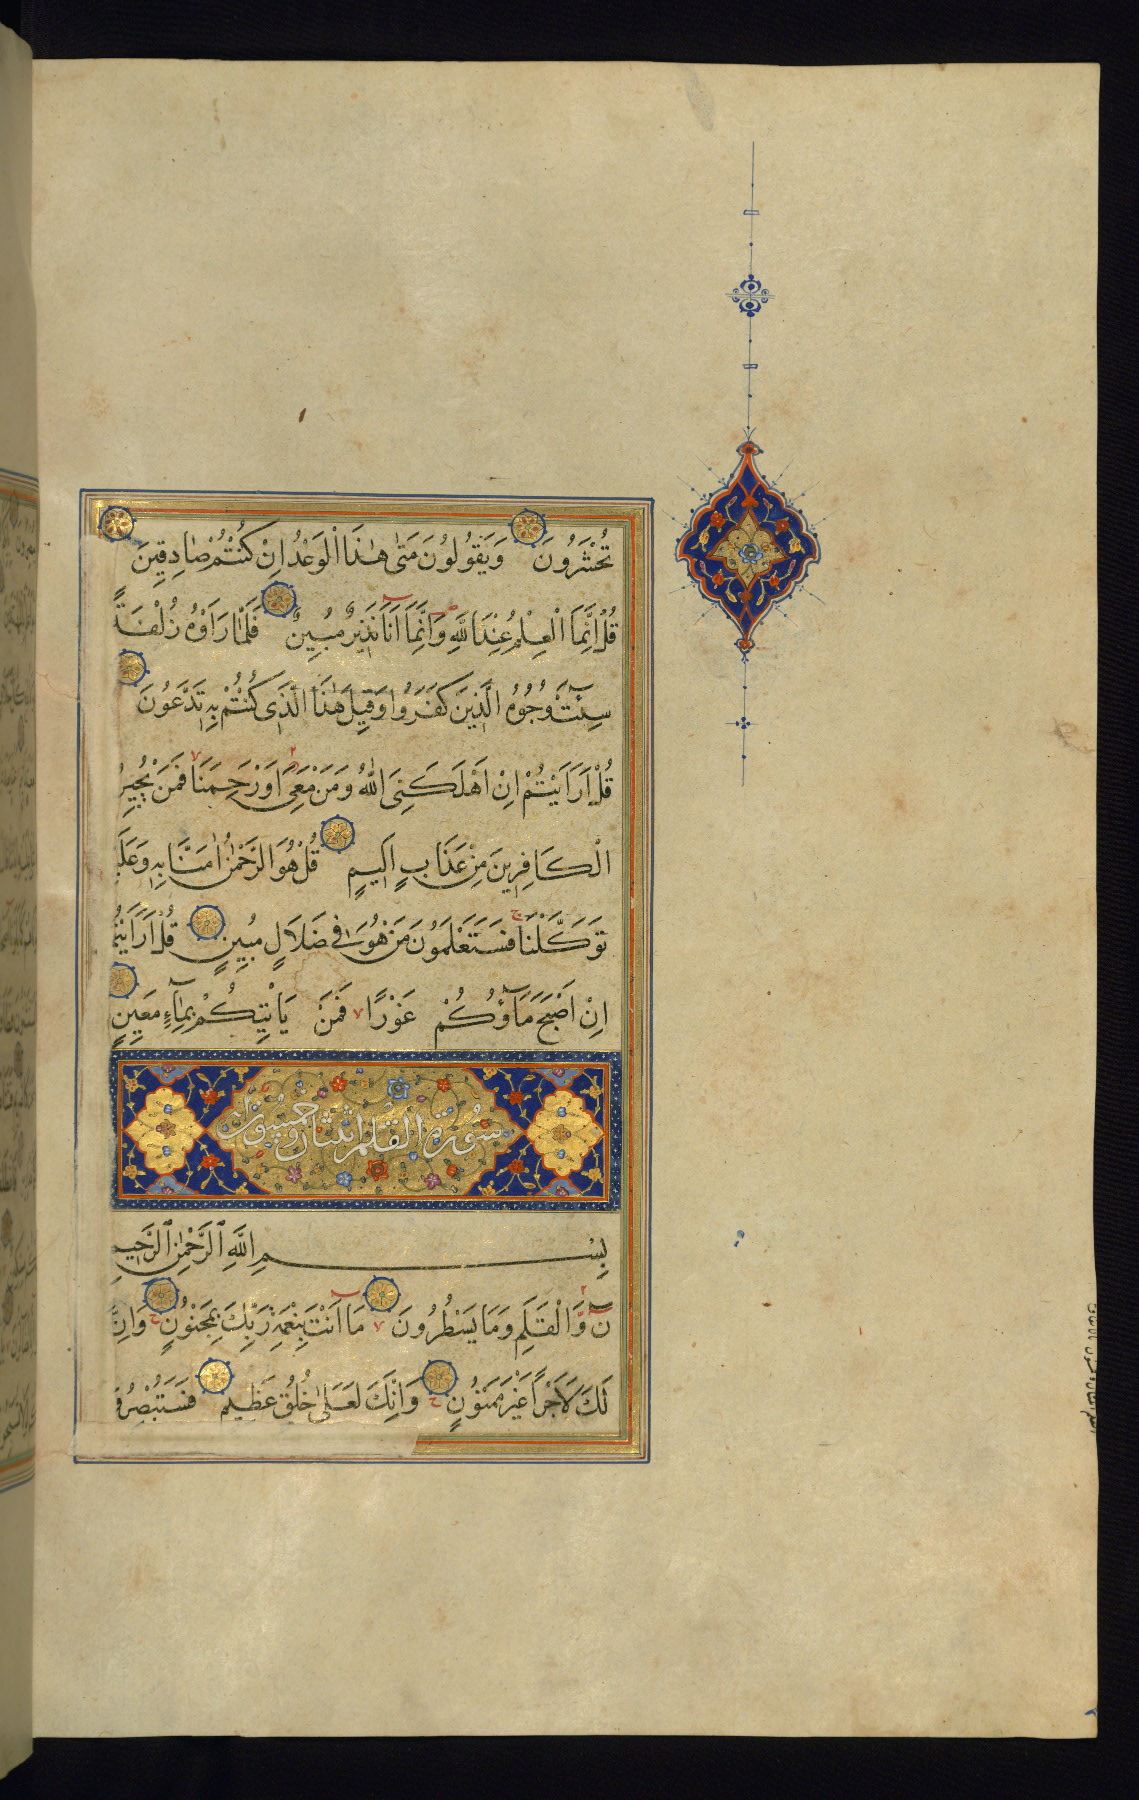 تُحْشَرُونَ وَيَقُولُونَ مَتٰى هٰذَا الْوَعْدُ اِنْ كُنْتُمْ صَادِقِينَ
قُلْ اِنَّمَا الْعِلْمُ عِنْدَ اللّٰهِ وَاِنَّمَا اَنَا نَذِيرٌ مُبِينٌ فَلَمَّا رَاَوْهُ زُلْفَةً
سِيئَتْ وُجُوهُ الَّذِينَ كَفَرُوا وَقِيلَ هٰذَا الَّذِى كُنْتُمْ بِهِ تَدَّعُونَ
قُلْ اَرَاَيْتُمْ اِنْ اَهْلَكَنِىَ اللّٰهُ وَمَنْ مَعِىَ اَوْ رَحِمَنَا فَمَنْ يُجِيرُ
الْكَافِرِينَ مِنْ عَذَابٍ اَلِيمٍ قُلْ هُوَ الرَّحْمٰنُ اٰمَنَّا بِهِ وَعَلَيْهِ
تَوَكَّلْنَا فَسَتَعْلَمُونَ مَنْ هُوَ فِى ضَلَالٍ مُبِينٍ قُلْ اَرَاَيْتُمْ
اِنْ اَصْبَحَ مَآؤُكُمْ غَوْرًا فَمَنْ يَاْتِيكُمْ بِمَآءٍ مَعِينٍ
سُورَة القلم اثنتان وخمسون اٰية
بِسْمِ اللَّهِ الرَّحْمٰنِ الرَّحِيمِ
نٓ وَالْقَلَمِ وَمَا يَسْطُرُونَ مَا اَنْتَ بِنِعْمَةِ رَبِّكَ بِمَجْنُونٍ وَاِنَّ
لَكَ لَاَجْرًا غَيْرَ مَمْنُونٍ وَاِنَّكَ لَعَلٰى خُلُقٍ عَظِيمٍ فَسَتُبْصِرُ وَ